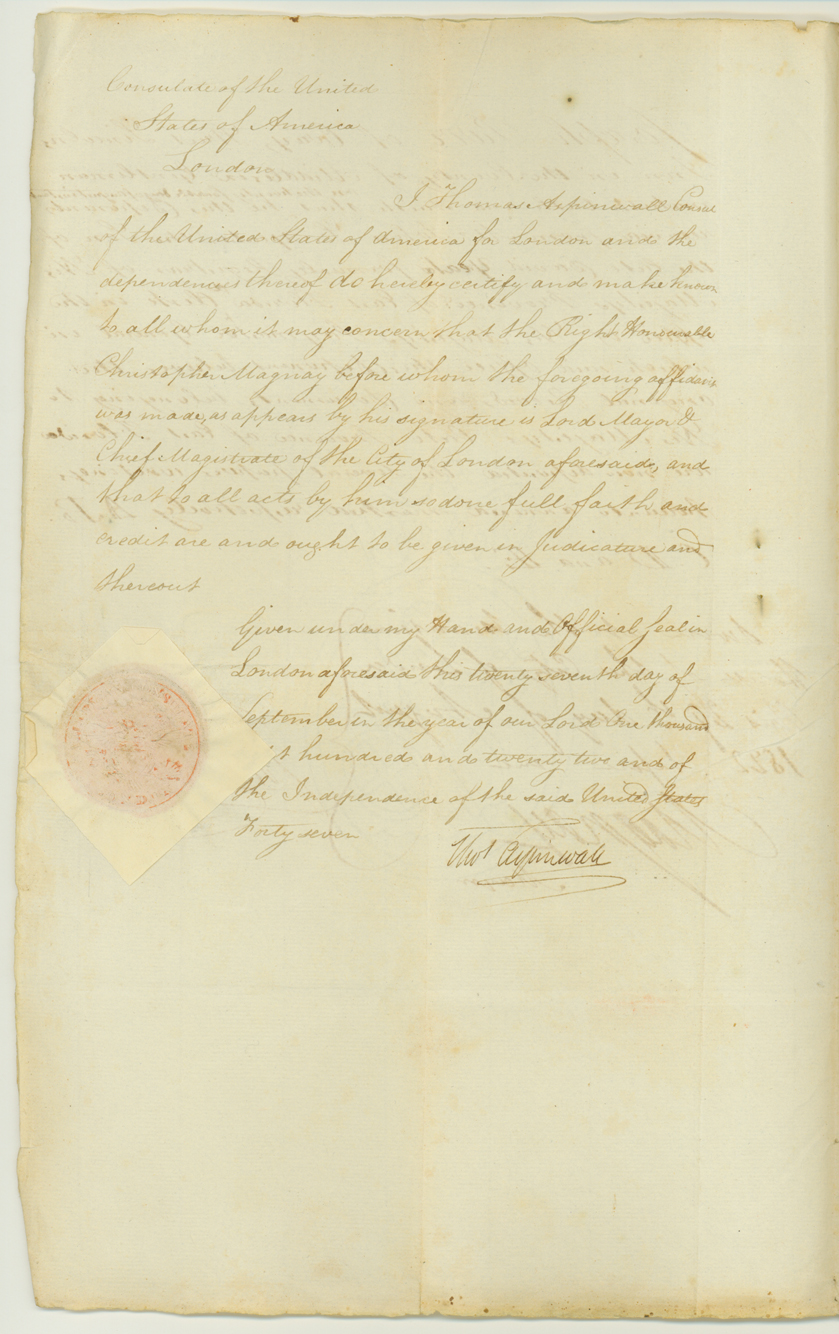 Consulate of the United
States of America
London
I Thomas Aspinwall Consul
of the United States of America for London and the
dependencies thereof do hereby certify and make known
to all whom it may concern that the Right Honourable
Christopher Magnay before whom the foregoing affidavit
was made, as appears by his signature is Lord Mayor &
Chief Magistrate of the City of London aforesaid, and
that to all acts by him so done full faith and
credit are and ought to be given in Judicature and
thereout
Given under my Hand and Official Seal in
London aforesaid this twenty seventh day of
September in the year of our Lord One thousand
hundred and twenty two and of
the Independence of the said United States
Forty seven
Thos Aspinwall